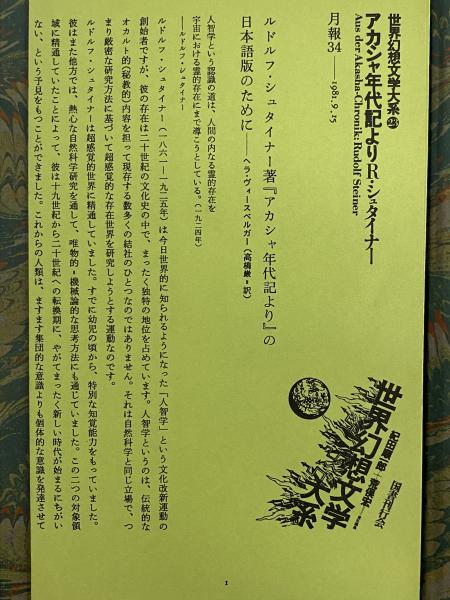 世界幻想文学大系㉓
アカシャ年代記より R・シュタイナー
Aus der Akasha-Chronik: Rudolf Steiner
月報34——1981.9.25
ルドルフ・シュタイナー著『アカシャ年代記より』の
日本語版のために——ヘラ・ヴィースベルガー(高橋巌=訳)
人智学という認識の道は、人間の内なる霊的存在を
宇宙における霊的存在にまで導こうとしている。(一九二四年)
——ルドルフ・シュタイナー
ルドルフ・シュタイナー(一八六一—一九二五年)は今日世界的に知られるようになった「人智学」という文化改新運動の
創始者ですが、彼の存在は二十世紀の文化史の中で、まったく独特の地位を占めています。人智学というのは、伝統的な
オカルト的(秘教的)内容を担って現存する数多くの結社のひとつなのではありません。それは自然科学と同じ立場で、つ
まり厳密な研究方法に基づいて超感覚的な存在世界を研究しようとする運動なのです。
ルドルフ・シュタイナーは超感覚的世界に精通していました。すでに幼児の頃から、特別な知覚能力をもっていました。
彼はまた他方では、熱心な自然科学研究を通して、唯物的=機械論的な思考方法にも通じていました。この二つの対象領
域に精通していたことによって、彼は十九世紀から二十世紀への転換期に、やがてまったく新しい時代が始まるにちがい
ない、という予見をもつことができました。これからの人類は、ますます集団的な意識よりも個体的な意識を発達させて
国書刊行会
紀田順一郎
荒俣宏
世界幻想文学大系
1